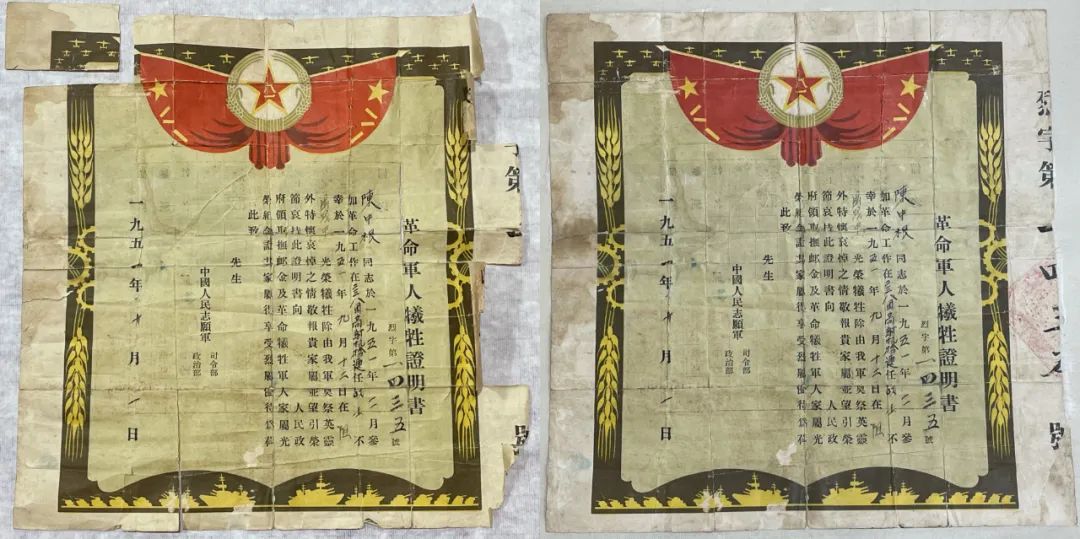 字第
號
革命軍人犧牲證明書
烈字第一四三五號
陳中秩同志於一九五一年二月參
加革命工作在高射機槍連任战士不
幸於一九五一年九月十三日在
光榮犧牲除由我軍奠祭英靈
外特懷哀悼之情敬報貴家屬並望引榮
節哀持此證明書向 人民政
府領取撫卹金及革命犧牲軍人家屬光
榮紀念證其家屬得享受烈屬優待爲荷
此致
先生
中國人民志願軍
司令部
政治部
一九五一年 月一日
字第一四三
號
革命軍人犧牲證明書
烈字第一四三五號
陳中秩同志於一九五一年二月參
加革命工作在高射機槍連任战士不
幸於一九五一年九月十三日在
光榮犧牲除由我軍奠祭英靈
外特懷哀悼之情敬報貴家屬並望引榮
節哀持此證明書向 人民政
府領取撫卹金及革命犧牲軍人家屬光
榮紀念證其家屬得享受烈屬優待爲荷
此致
先生
中國人民志願軍
司令部
政治部
一九五一年 月一日